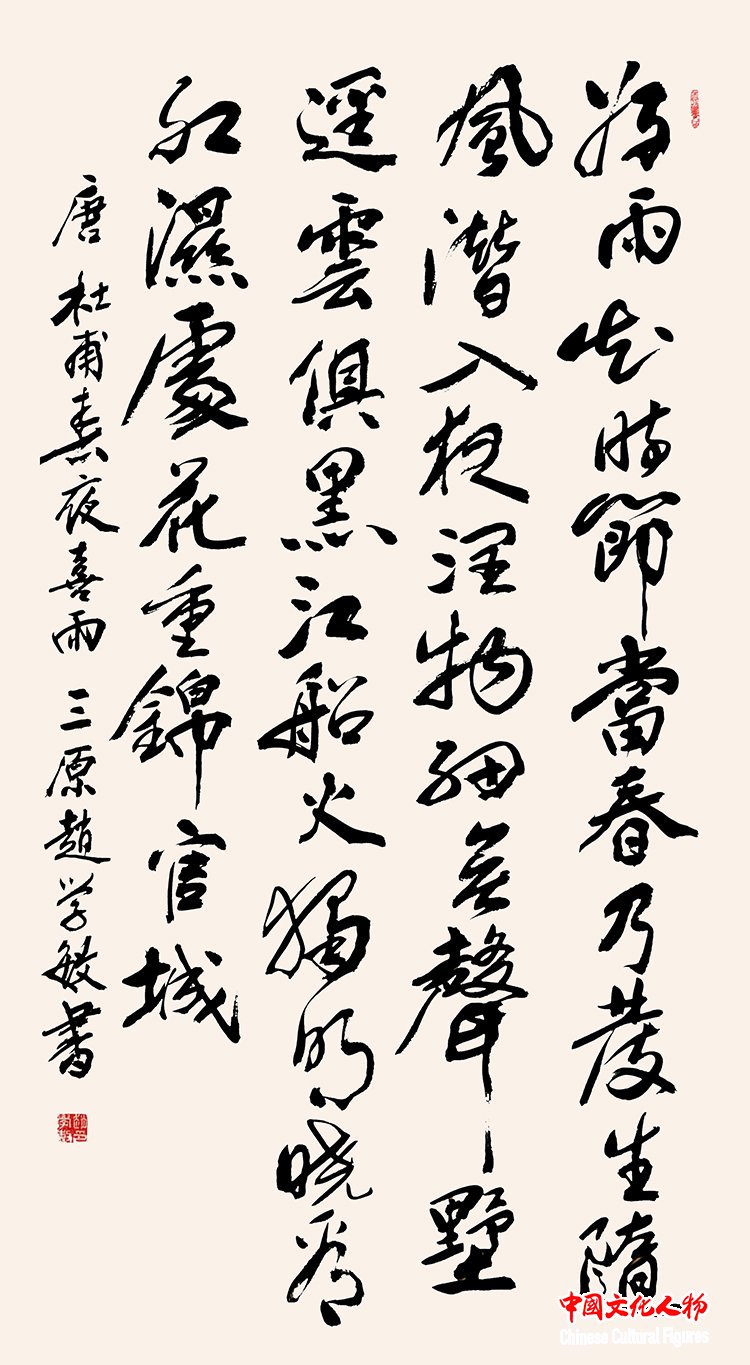 好雨知時節當春乃發生隨
風潛入夜潤物細無聲墅
逕雲俱黑江船火獨明曉看
紅濕處花重錦官城
唐 杜甫春夜喜雨 三原趙学敏書
中國文化人物
Chinese Cultural Figures